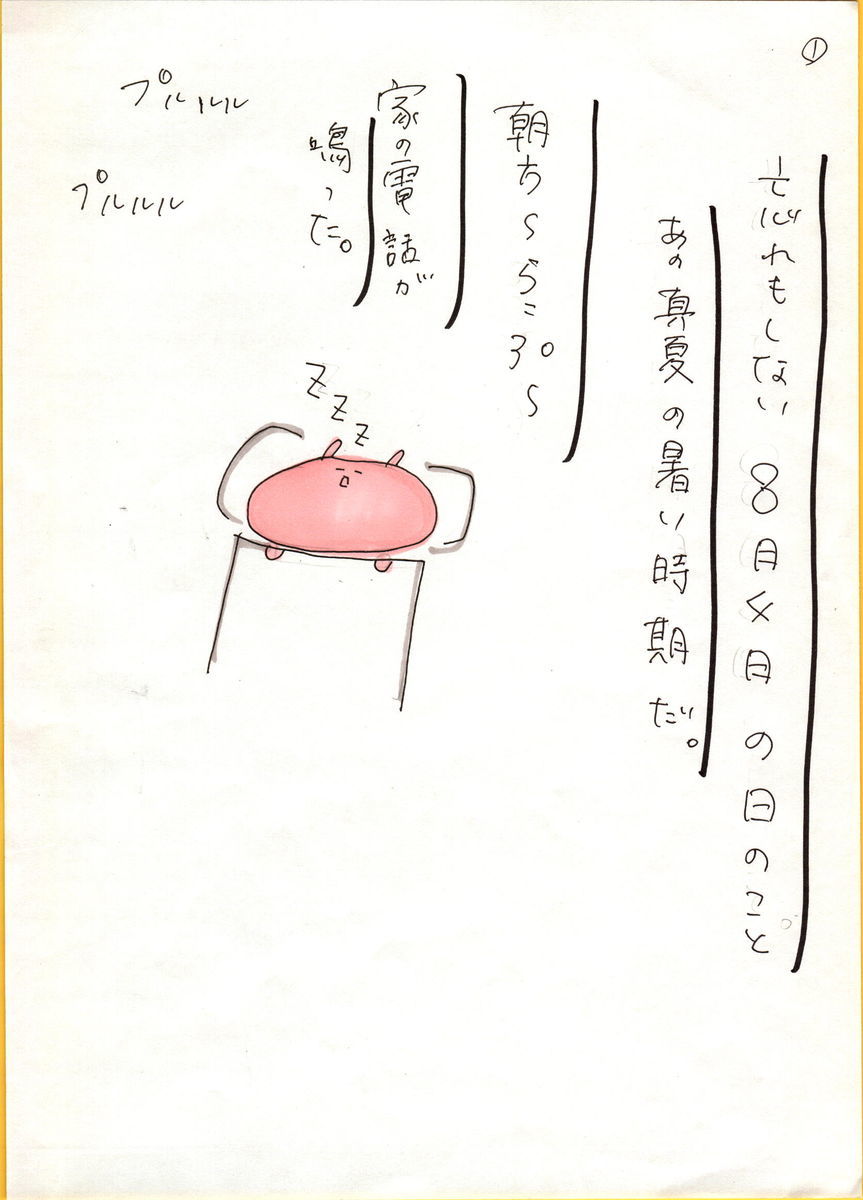 ①
忘れもしない 8月4日の日のこと。
あの真夏の暑い時期だ。
朝方〜5:30〜
家の電話が
鳴った。
プルルル
プルルル
ZZZ